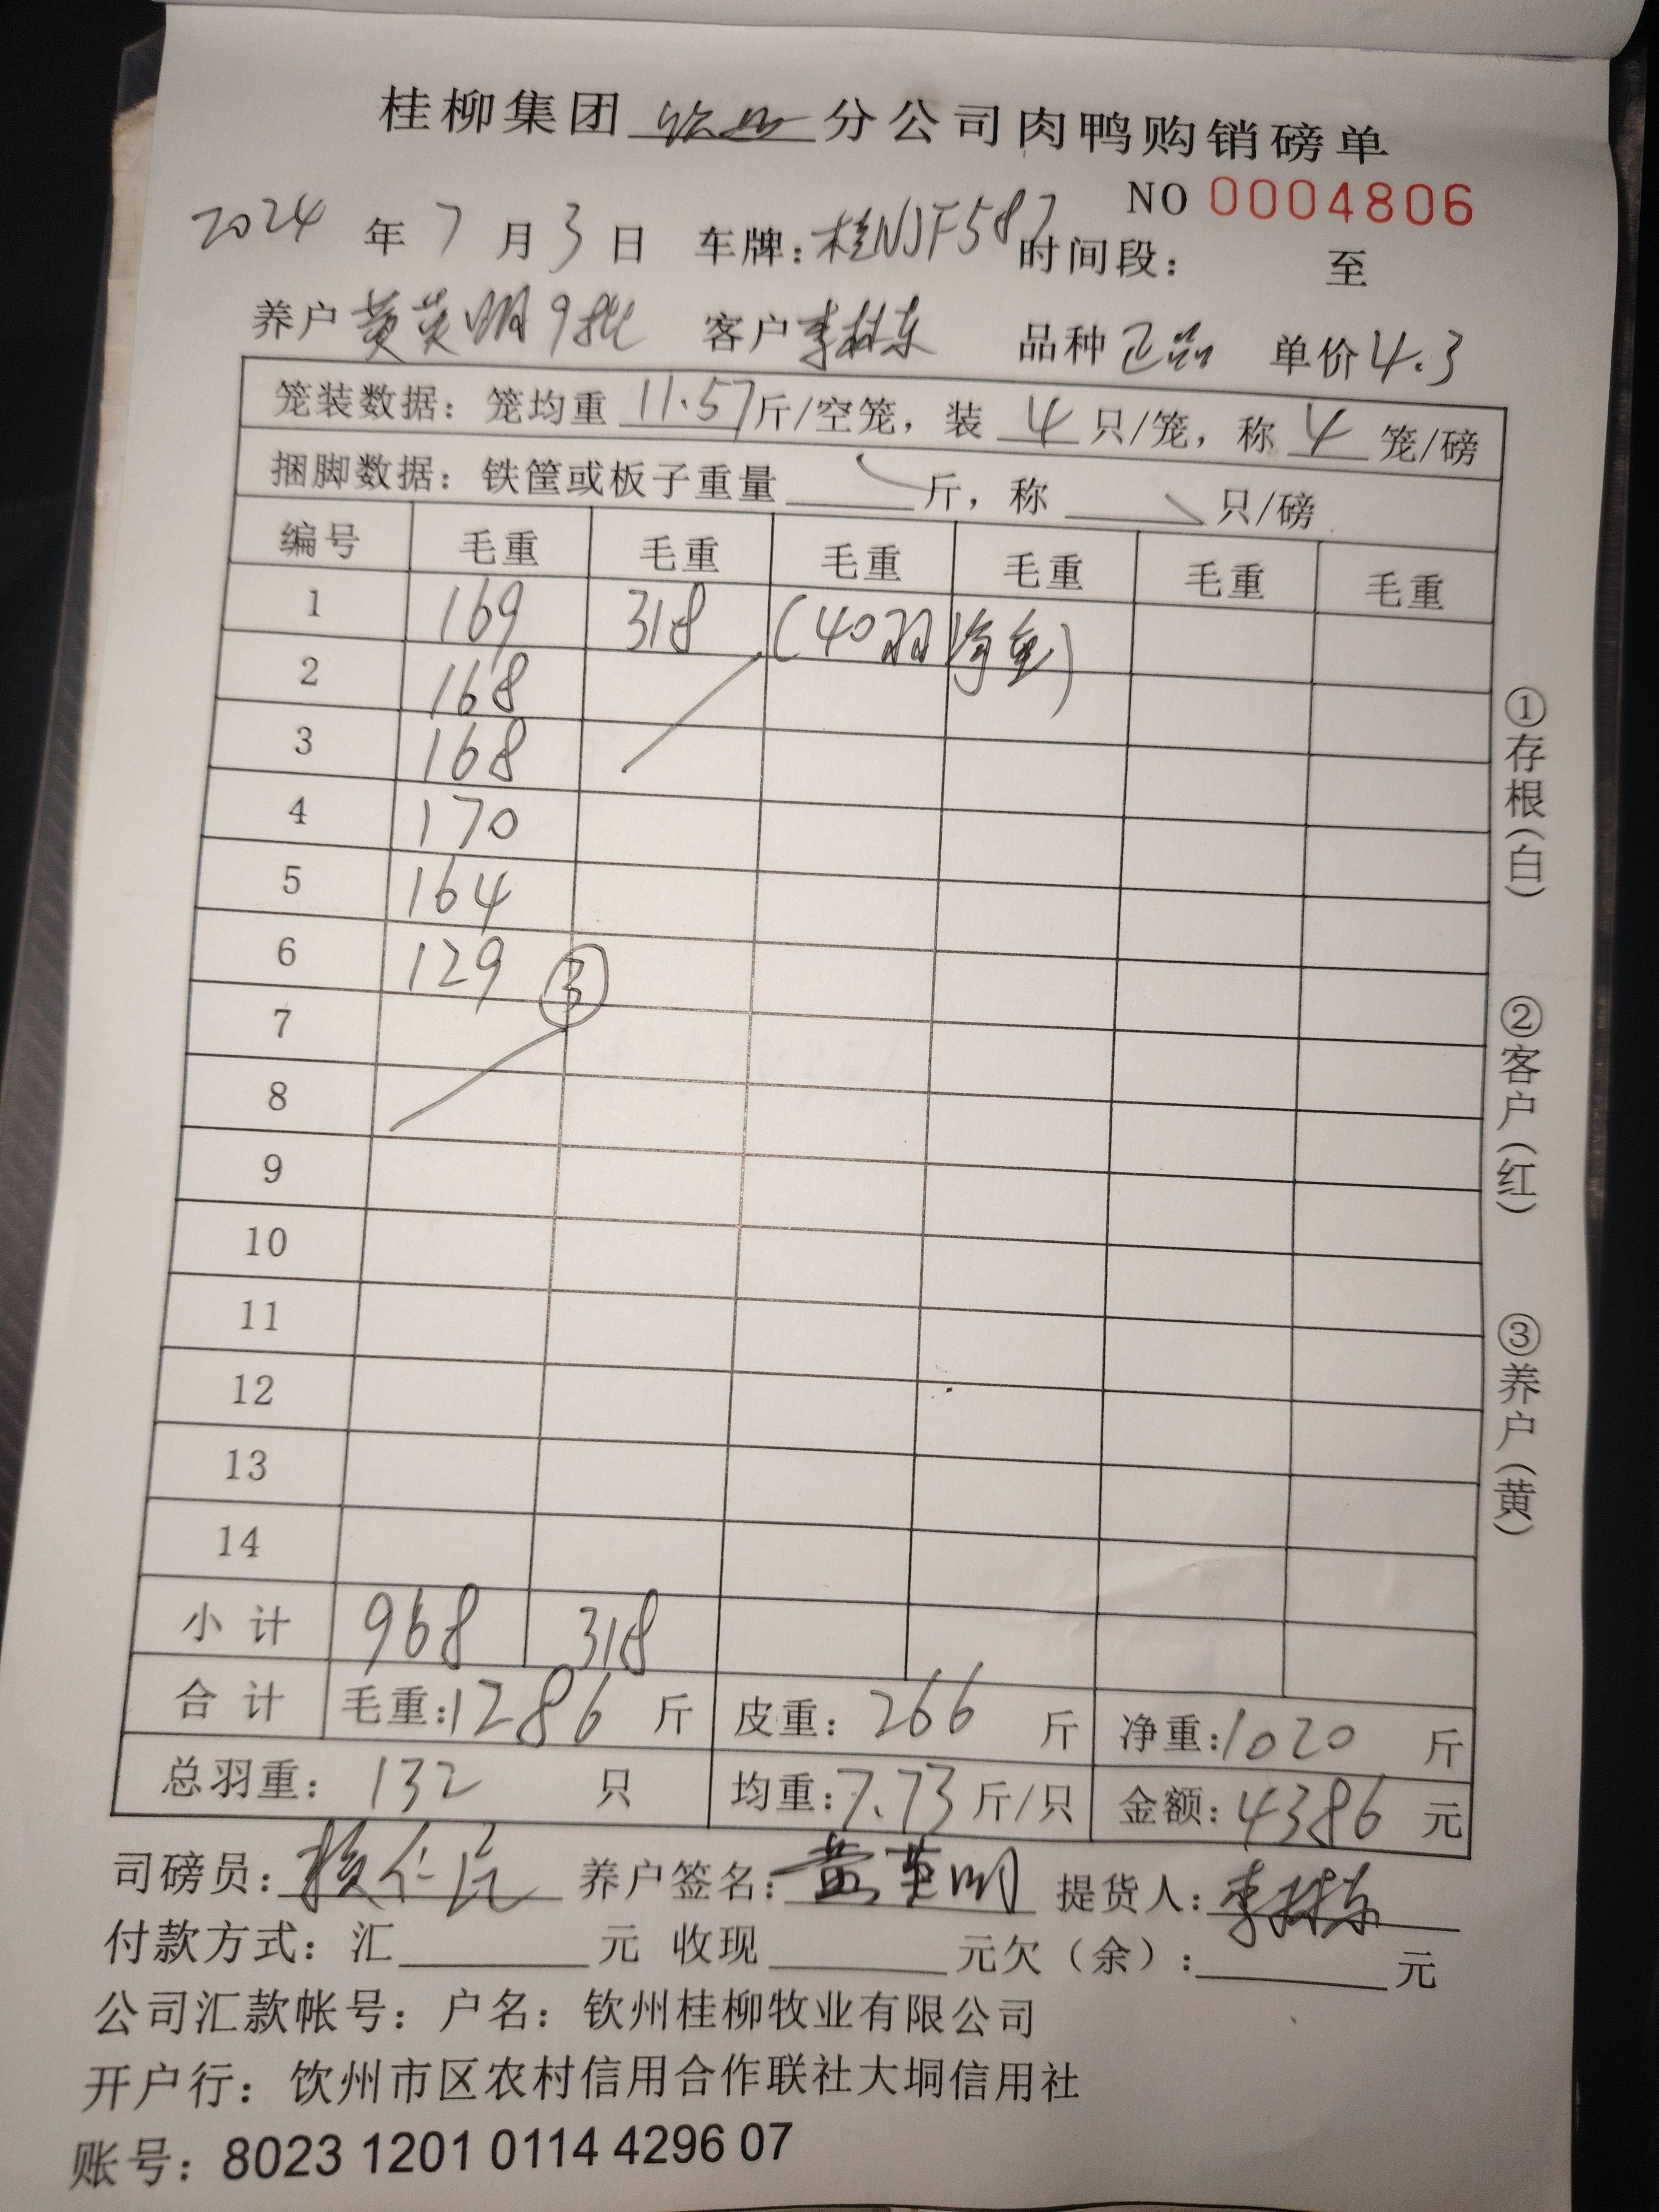 桂柳集团 钦州 分公司肉鸭购销磅单
NO 0004806
2024 年 7 月 3 日 车牌：桂NJF587 时间段： 至
养户 黄英明 9批 客户 李林东 品种 正品 单价 4.3
笼装数据：笼均重 11.57 斤/空笼，装 4 只/笼，称 4 笼/磅
捆脚数据：铁筐或板子重量 斤，称 只/磅
编号 毛重 毛重 毛重 毛重 毛重 毛重
1 169 318 (40羽净重)
2 168
3 168
4 170
5 164
6 129 ③
7
8
9
10
11
12
13
14
小计 968 318
合计 毛重：1286 斤 皮重：266 斤 净重：1020 斤
总羽重：132 只 均重：7.73 斤/只 金额：4386 元
司磅员： 养户签名：黄英明 提货人：李林东
付款方式：汇 元 收现 元欠（余）： 元
公司汇款帐号：户名：钦州桂柳牧业有限公司
开户行：饮州市区农村信用合作联社大垌信用社
账号：8023 1201 0114 4296 07
①存根(白) ②客户(红) ③养户(黄)